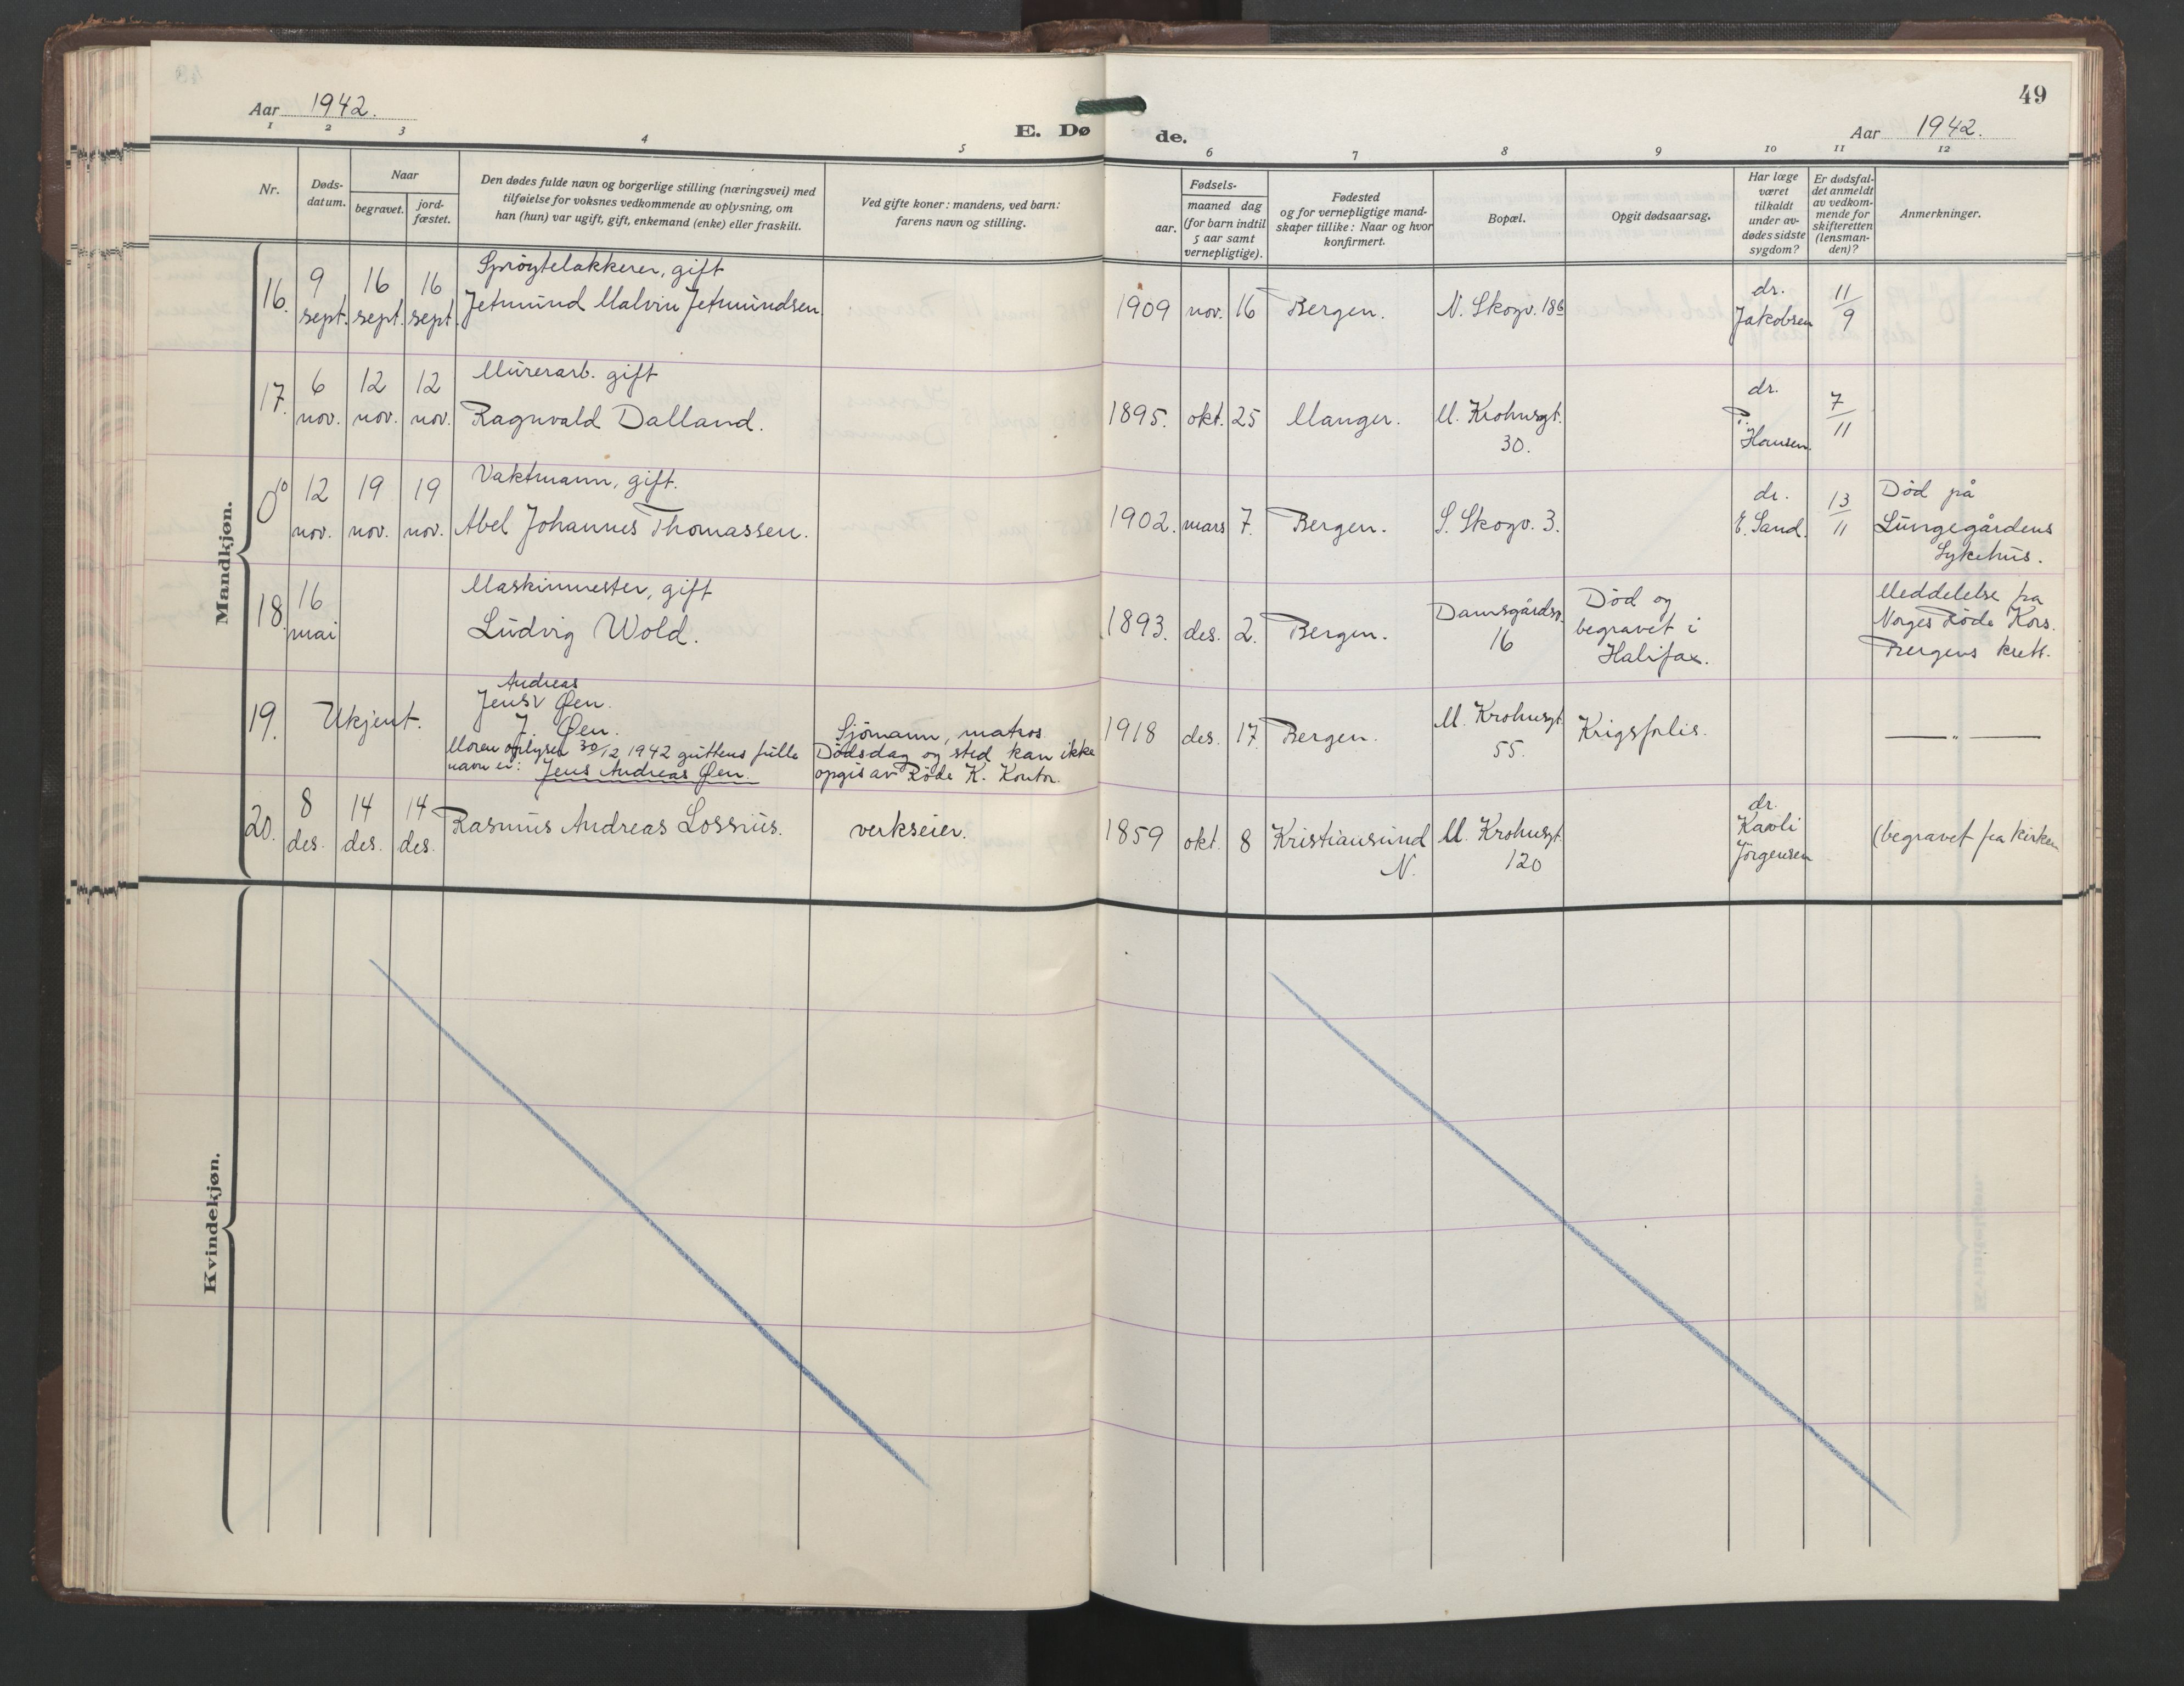 Aar 1942.
E. Dø de.
49
Aar 1942.
1 2 3 4 5 6 7 8 9 10 11 12
Nr.
Døds-
datum.
Naar
begravet.
jord-
fæstet.
Den dødes fulde navn og borgerlige stilling (næringsvei) med
tilføielse for voksnes vedkommende av oplysning, om
han (hun) var ugift, gift, enkemand (enke) eller fraskilt.
Ved gifte koner: mandens, ved barn:
farens navn og stilling.
Fødsels-
aar.
maaned dag
(for barn indtil
5 aar samt
vernepligtige).
Fødested
og for vernepligtige mand-
skaper tillike: Naar og hvor
konfirmert.
Bopæl.
Opgit dødsaarsag.
Har læge
været
tilkaldt
under av-
dødes sidste
sygdom?
Er dødsfal-
det anmeldt
av vedkom-
mende for
skifteretten
(lensman-
den)?
Anmerkninger.
Mandkjøn.
16. 9 sept. 16 sept. 16 sept.
Sprøytelakkerer, gift
Jetmund Malvin Jetmundsen.
1909 nov. 16 Bergen. N. Skogv. 18b
dr.
Jakobsen
11/9
17. 6 nov. 12 nov. 12 nov.
Murerarb. gift
Ragnvald Dalland.
1895. okt. 25 Manger. M. Krohnsgt.
30.
dr.
P.
Hansen.
7/11
0 12 nov. 19 nov. 19 nov.
Vaktmann, gift.
Abel Johannes Thomassen.
1902. mars 7. Bergen. S. Skogv. 3.
dr.
E. Sand.
13/11
Død på
Lungegårdens
Sykehus.
18. 16 mai
Maskinmester, gift
Ludvig Wold.
1893. des. 2. Bergen. Damsgårdsv.
16
Død og
begravet i
Halifax.
Meddelelse fra
Norges Røde Kors.
Bergens krets.
19. Ukjent.
Andreas
Jens v Øen.
J. Øen.
Moren oplyser 30/12 1942 guttens fulle
navn er: Jens Andreas Øen.
Sjømann, matros.
Dødsdag og sted kan ikke
opgis av Røde K. Kontor.
1918 des. 17. Bergen. M. Krohnsgt.
55.
Krigsforlis.
— „ —
20. 8 des. 14 des. 14 des.
Rasmus Andreas Lossius. verkseier.
1859 okt. 8 Kristiansund
N.
M. Krohnsgt.
120
dr.
Kavli
Jørgensen
(begravet fra kirken
Kvindekjøn.